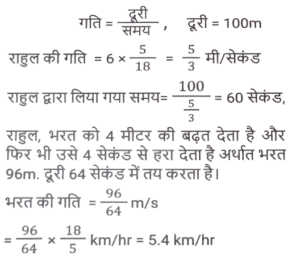 गति = दूरी/समय , दूरी = 100m
राहुल की गति = 6 × 5/18 = 5/3 मी/सेकंड
राहुल द्वारा लिया गया समय= 100/(5/3) = 60 सेकंड,
राहुल, भरत को 4 मीटर की बढ़त देता है और
फिर भी उसे 4 सेकंड से हरा देता है अर्थात भरत
96m. दूरी 64 सेकंड में तय करता है।
भरत की गति = 96/64 m/s
= 96/64 × 18/5 km/hr = 5.4 km/hr